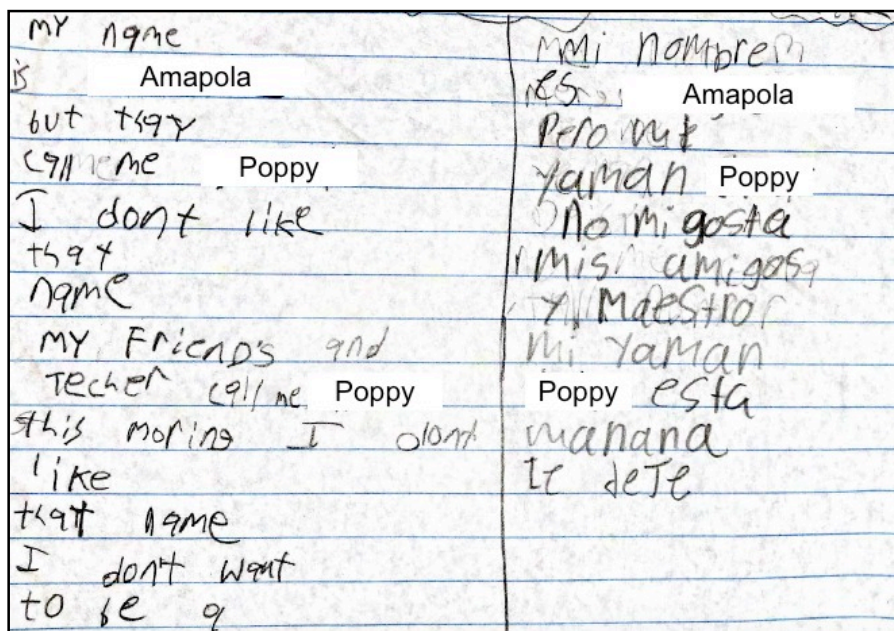 MY name
is Amapola
but thay
call me Poppy
I dont like
that
name
MY Friend's and
Techer call me Poppy
this moring I dont
like
that name
I don't want
to be a
mi nombre
es Amapola
Pero
yaman Poppy
no mi gosta
mis amigos
y maestro
mi yaman
Poppy esta
manana